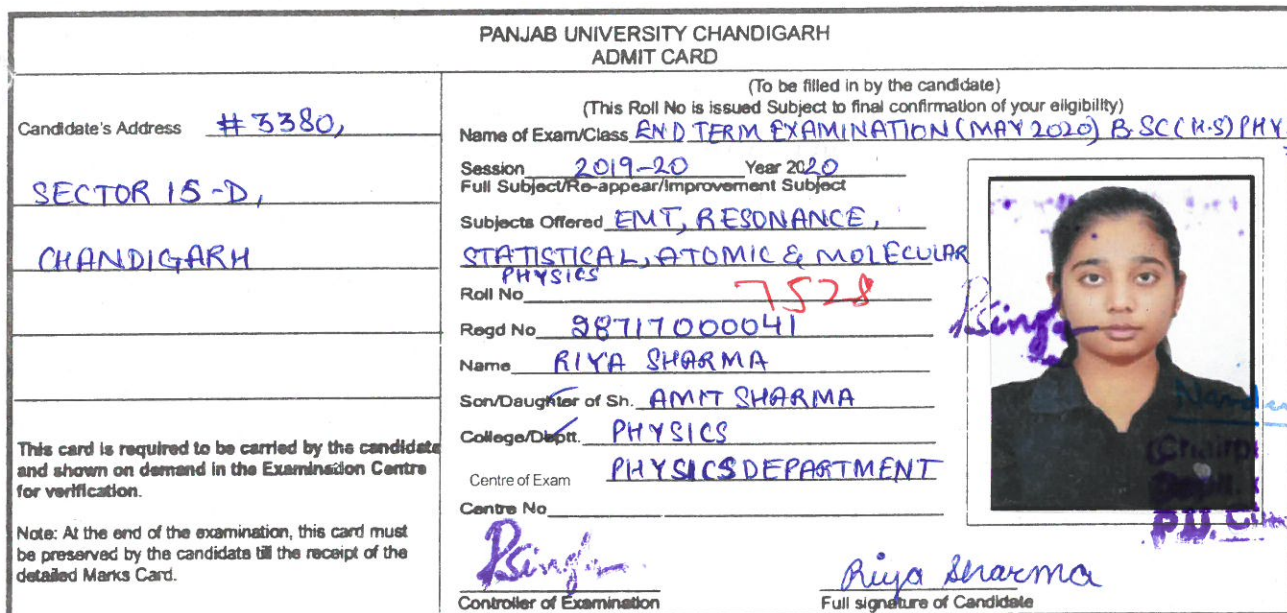 PANJAB UNIVERSITY CHANDIGARH
ADMIT CARD
Candidate's Address #3380,
SECTOR 15-D,
CHANDIGARH
This card is required to be carried by the candidate
and shown on demand in the Examination Centre
for verification.
Note: At the end of the examination, this card must
be preserved by the candidate till the receipt of the
detailed Marks Card.
(To be filled in by the candidate)
(This Roll No is issued Subject to final confirmation of your eligibility)
Name of Exam/Class END TERM EXAMINATION (MAY 2020) B.SC (H.S) PHY
Session 2019-20 Year 2020
Full Subject/Re-appear/Improvement Subject
Subjects Offered EMT, RESONANCE,
STATISTICAL, ATOMIC & MOLECULAR
PHYSICS
Roll No 7528
Regd No 98717000041
Name RIYA SHARMA
Son/Daughter of Sh. AMIT SHARMA
College/Deptt. PHYSICS
Centre of Exam PHYSICS DEPARTMENT
Centre No
PSingh
Controller of Examination
Riya Sharma
Full signature of Candidate
PSingh